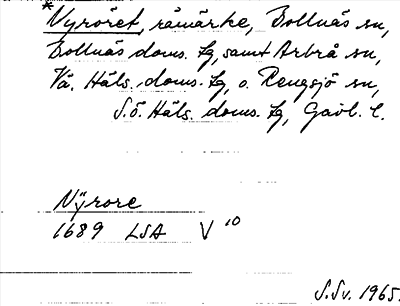 *Nyröret, råmärke, Bollnäs sn,
Bollnäs doms. tg, samt Arbrå sn,
Vä. Häls. doms. tg, o. Rengsjö sn,
S.ö. Häls. doms. tg, Gävl. l.
Nÿrore
1689 LSA V 10
S.Sv. 1965.